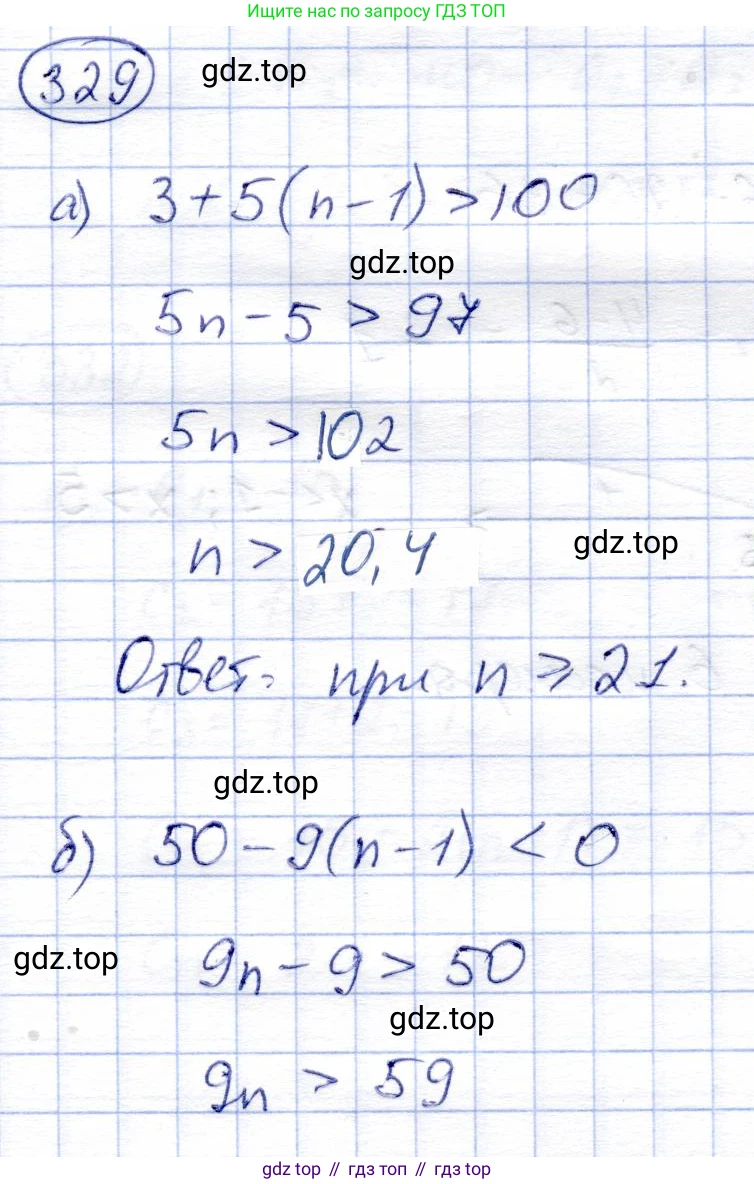 Ищите нас по запросу ГДЗ ТОП
329
gdz.top
а) 3 + 5(n - 1) > 100
gdz.top
5n - 5 > 97
5n > 102
n > 20,4
gdz.top
Ответ: при n ⩾ 21.
gdz.top
б) 50 - 9(n - 1) < 0
gdz.top
9n - 9 > 50
gdz.top
9n > 59
gdz top // гдз топ // gdz top